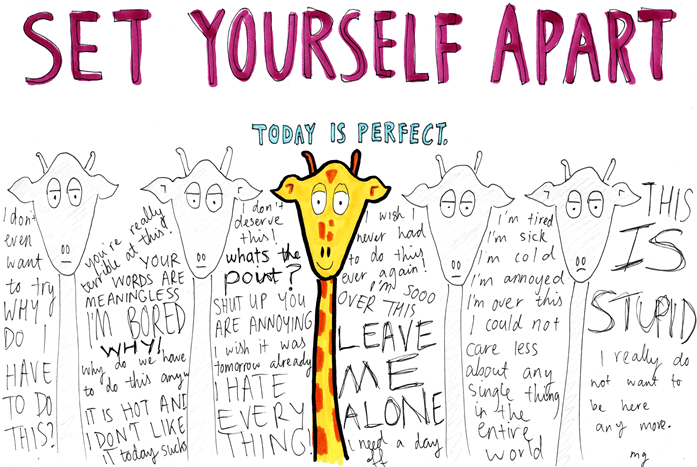 SET YOURSELF APART
TODAY IS PERFECT.
I don't
even
want
to try
WHY
DO I
HAVE
TO DO
THIS?
you're really
terrible at this!
YOUR
WORDS ARE
MEANINGLESS
I'M BORED
WHY!
why do we have
to do this anyw
IT IS HOT AND
I DON'T LIKE
IT today sucks
I don't
deserve
this!
whats the
point?
SHUT UP YOU
ARE ANNOYING
I wish it was
tomorrow already
I HATE
EVERY
THING!
I wish I
never had
to do this
ever again!
I'm SOOO
OVER THIS
LEAVE
ME
ALONE
I need a day
off
I'm tired
I'm sick
I'm cold
I'm annoyed
I'm over this
I could not
care less
about any
single thing
in the
entire
world
THIS
IS
STUPID
I really do
not want to
be here
any more.
mg